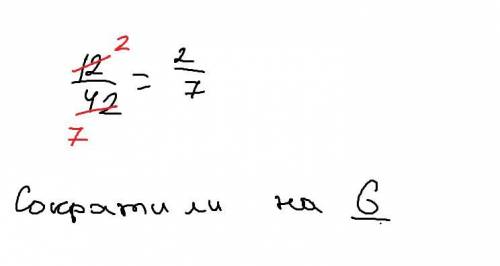 12 2
── = 2/7
42
7
Сократили на 6